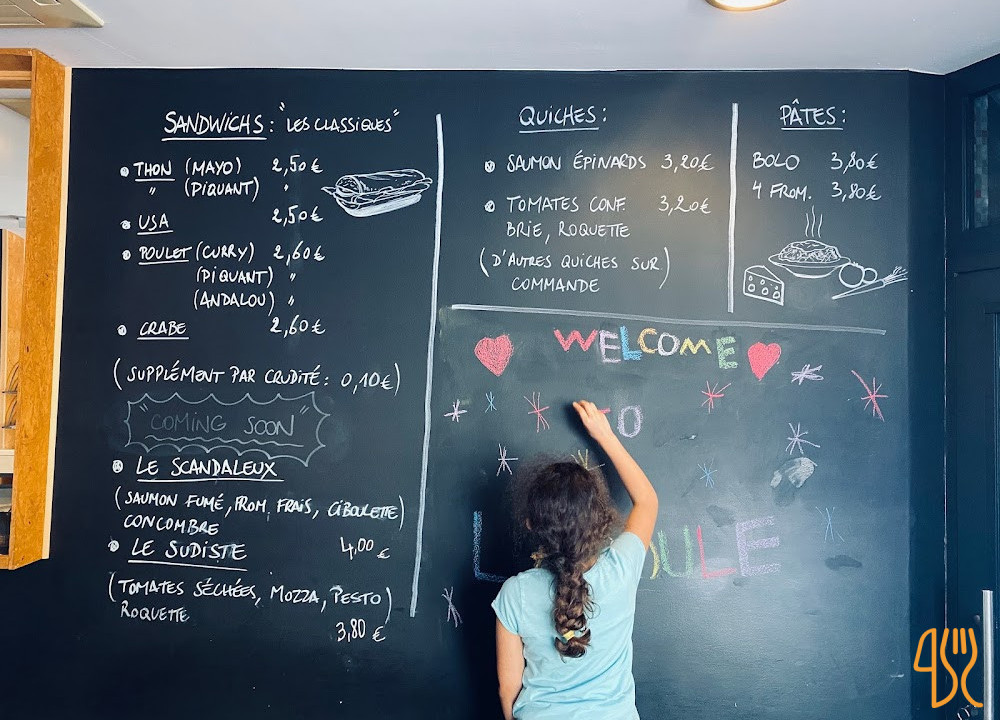 SANDWICHS : "LES CLASSIQUES"
THON (MAYO) 2,50 €
" (PIQUANT) "
USA 2,50 €
POULET (CURRY) 2,60 €
(PIQUANT) "
(ANDALOU) "
CRABE 2,60 €
(SUPPLÉMENT PAR CRUDITÉ : 0,10 €)
"COMING SOON"
LE SCANDALEUX
(SAUMON FUMÉ, FROM. FRAIS, CIBOULETTE)
CONCOMBRE
4,00 €
LE SUDISTE
(TOMATES SÉCHÉES, MOZZA, PESTO)
ROQUETTE
3,80 €
QUICHES :
SAUMON ÉPINARDS 3,20 €
TOMATES CONF. 3,20 €
BRIE, ROQUETTE
(D'AUTRES QUICHES SUR)
COMMANDE
PÂTES :
BOLO 3,80 €
4 FROM. 3,80 €
WELCOME
TO